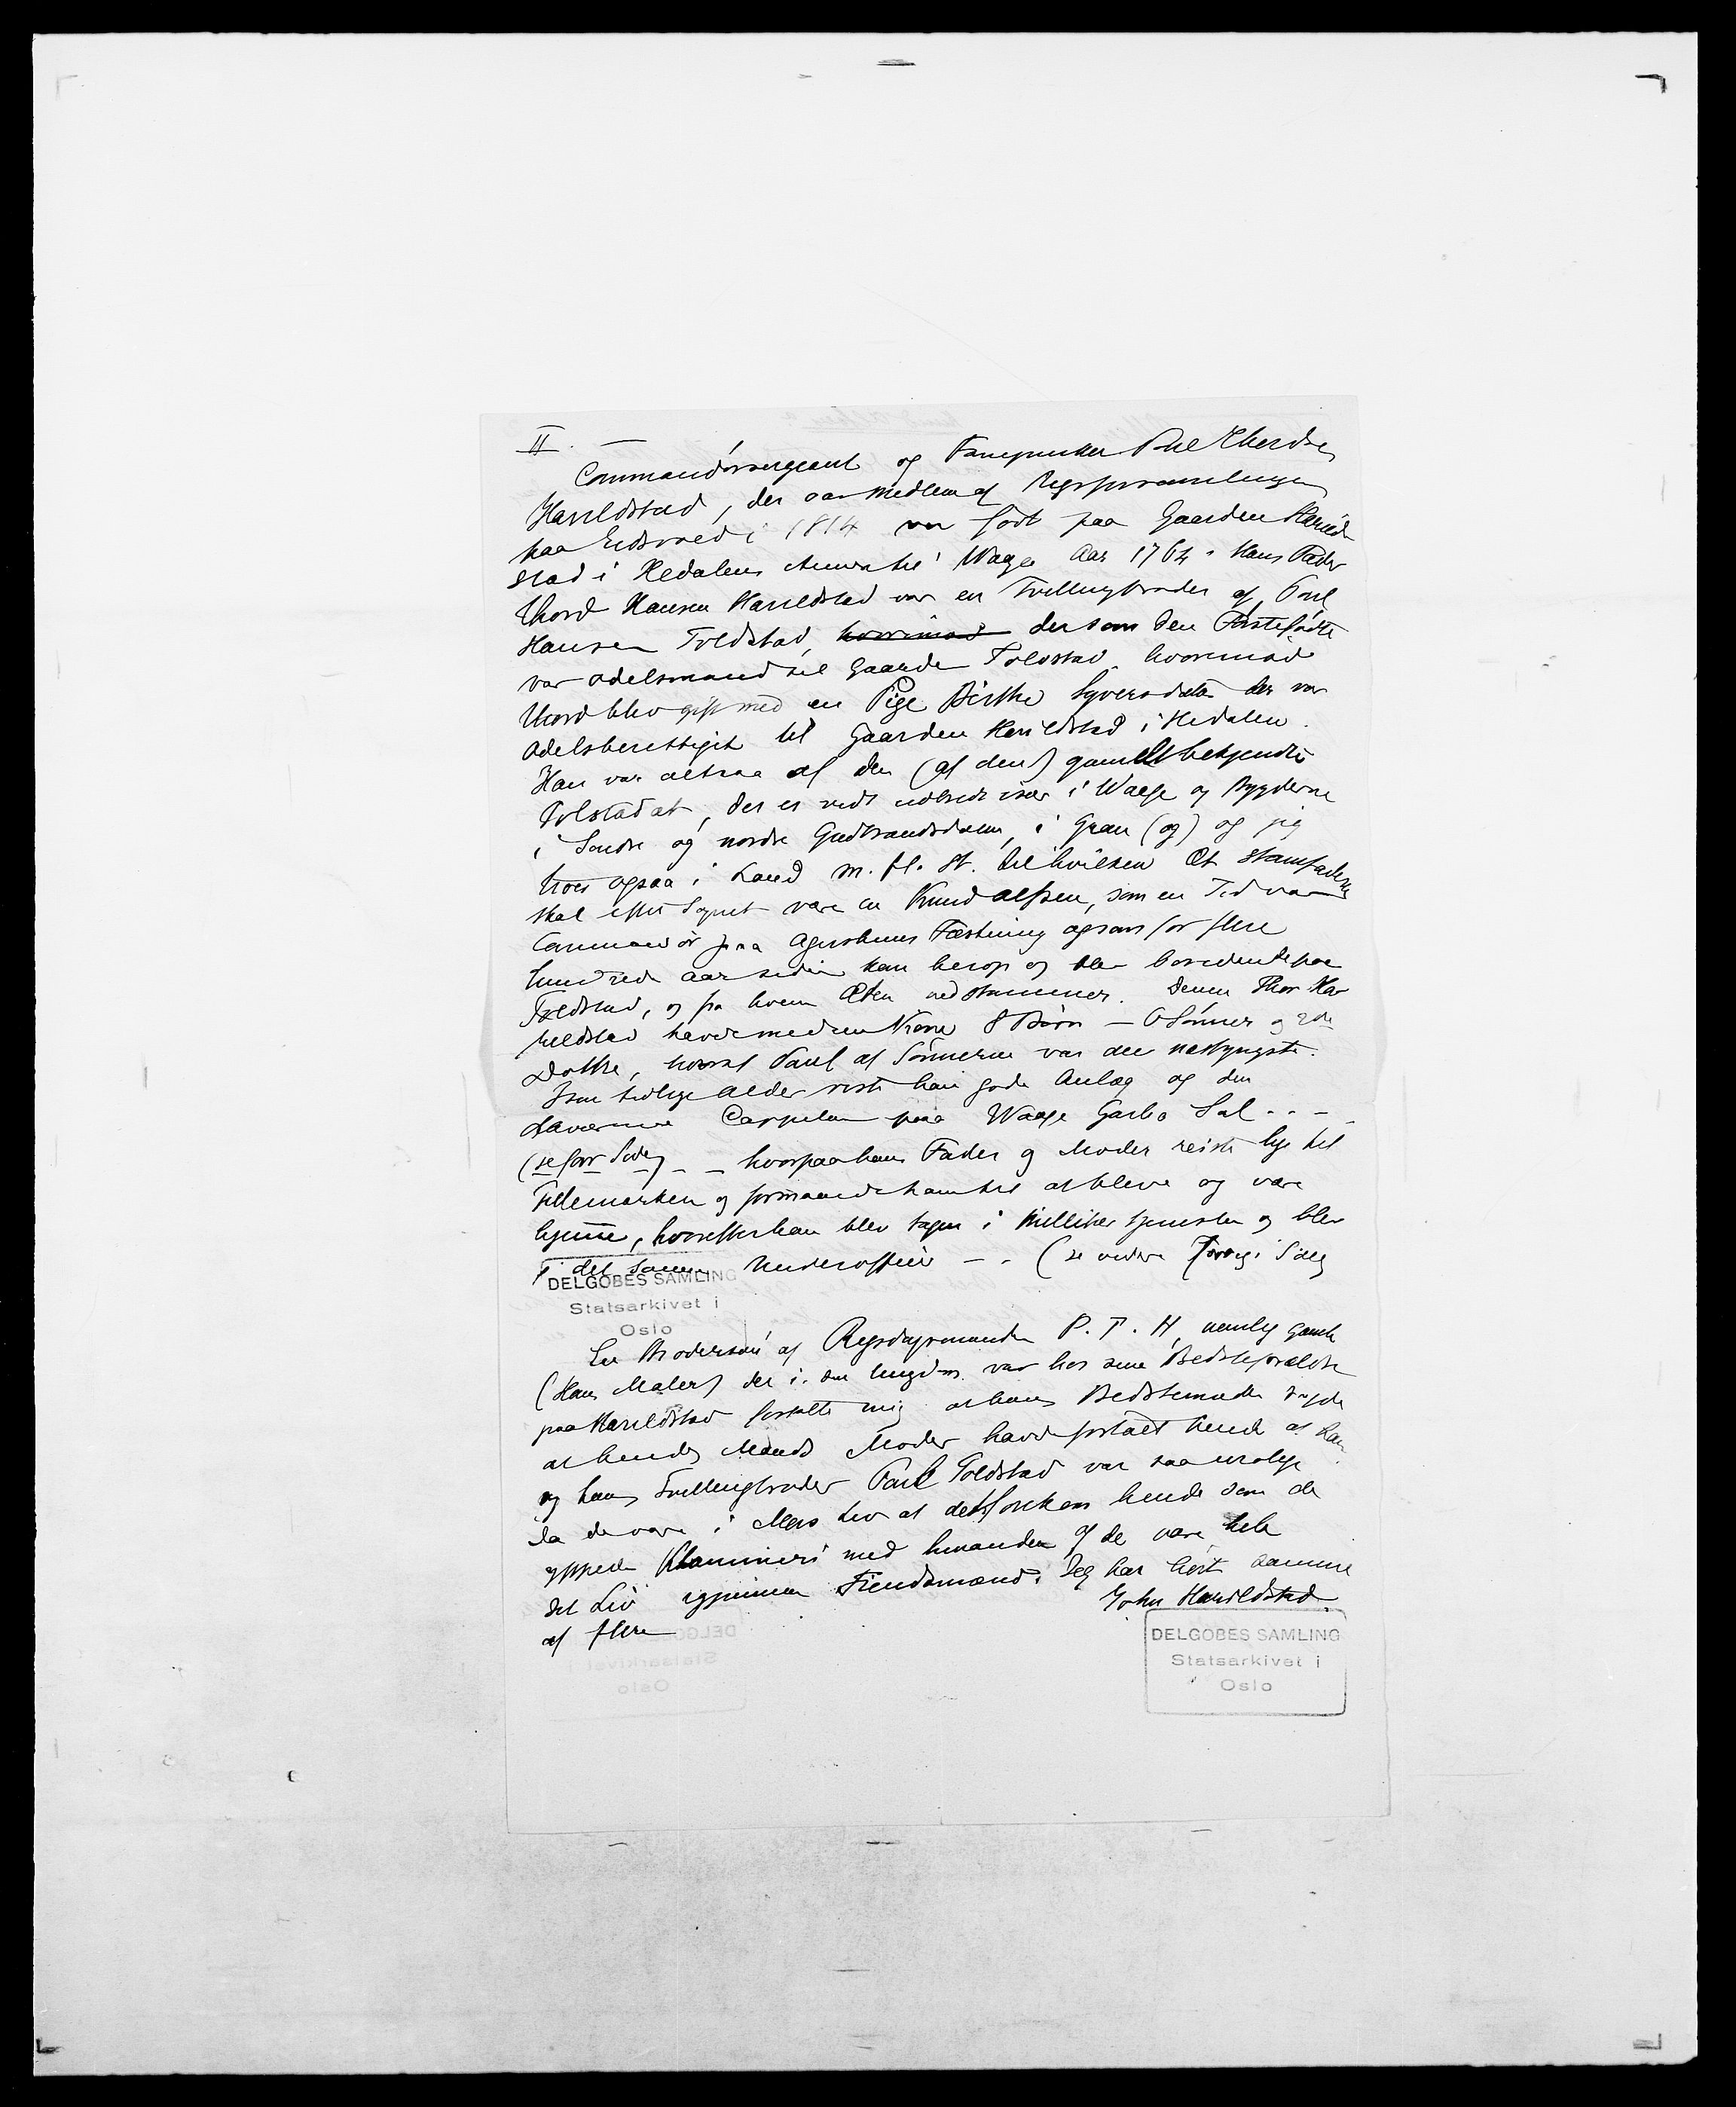 II. —
Commandørsergeant og Fanejunker Poul Thordsen
Harildstad, der var Medlem af Rigsforsamlingen
paa Eidsvold i 1814 var født paa Gaarden Harild-
stad i Hedalens Annex til Waage Aar 1764. Hans Fader
Thord Hansen Harildstad var en Tvillingbroder af Paul
Hansen Toldstad, der som den Førstefødte
var Odelsmand til Gaarden Toldstad hvorimod
Thord blev gift med en Pige Birthe Syversdatter der var
Odelsberettiget til Gaarden Harildstad i Hedalen.
Han var altsaa af den (af den) gamle bekjendte
Tolstadæt, der er vidt udbredt især i Waage og Bygderne
i Søndre og nordre Gudbrandsdalen, i Gran (og) og jeg
troer ogsaa i Land m. fl. St. til hvilken Æt Stamfaderen
skal efter Sagnet være en Knud Alfsen, som en Tid var
Commandør paa Agershuus Fæstning og som for flere
hundrede Aar siden kom herop og blev boende paa
Toldstad, og fra hvem Ætten nedstammer. Denne Thor Ha-
rildstad havde med sin Kone 8 Børn — 6 Sønner og 2de
Døttre, hvoraf Paul af Sønnerne var den næstyngste.
I sin tidlige Alder viste han gode Anlæg og den
daværende Cappelan paa Waage Garbo Sal . . —
(se forr Side) — — hvorpaa hans Fader og Moder reiste lige til
Fillemarken og formaaede ham til at blive og være
hjemme, hvorefter han blev tagen i Militær tjenesten og blev
i det samme Underofficer — . (se videre forrige Side)
DELGOBES SAMLING
Statsarkivet i
Oslo
En Brodersøn af Rigsdagsmanden P. T. H, nemlig gamle
(Hans Maler) der i sin Ungdom var hos sine Bedsteforældre
paa Harildstad fortalte mig at hans Bedstemoder sagde
at hendes Mands Moder havde fortalt hende at han
og hans Tvillingbroder Paul Toldstad var saa urolige
da de vare i Mors Liv at det forekom hende som de
yppede Klammeri med hinanden og de vare hele
det Liv igjennem Fiendsmænd. Jeg har hørt samme
af flere
John Harildstad.
DELGOBES SAMLING
Statsarkivet i
Oslo